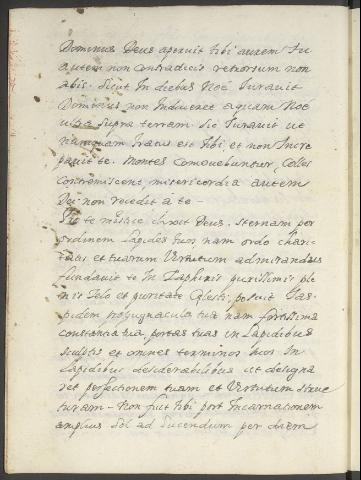 Dominus Deus aperuit tibi aurem tu
autem non contradicis retrorsum non
abis. Sicut In diebus Noe Iuravit
Dominus non Induceret aquam Noe
ultra supra terram. Sic Iuravit ut
numquam Iratus est tibi et non Incre
pavit te. Montes Comovebuntur, Colles
Contremiscent, misericordia autem
Dei non recedit a te -
Sic te mistice docet Deus. sternam per
ordinem Lapides tuos nam ordo chari-
tatis et tuarum Virtutum admirandus
fundavit te In Saphiris purissimis ple
nis Zelo et puritate Celesti: posuit Ias-
pidem propugnacula tua nam fortissima
constantia tua, portas tuas in Lapidibus
sculptis et omnes terminos tuos In
Lapidibus desiderabilibus ut designa
ret perfectionem tuam et Virtutum struc
turam - Non fuit tibi post Incarnationem
amplius Sol ad Lucendum per diem